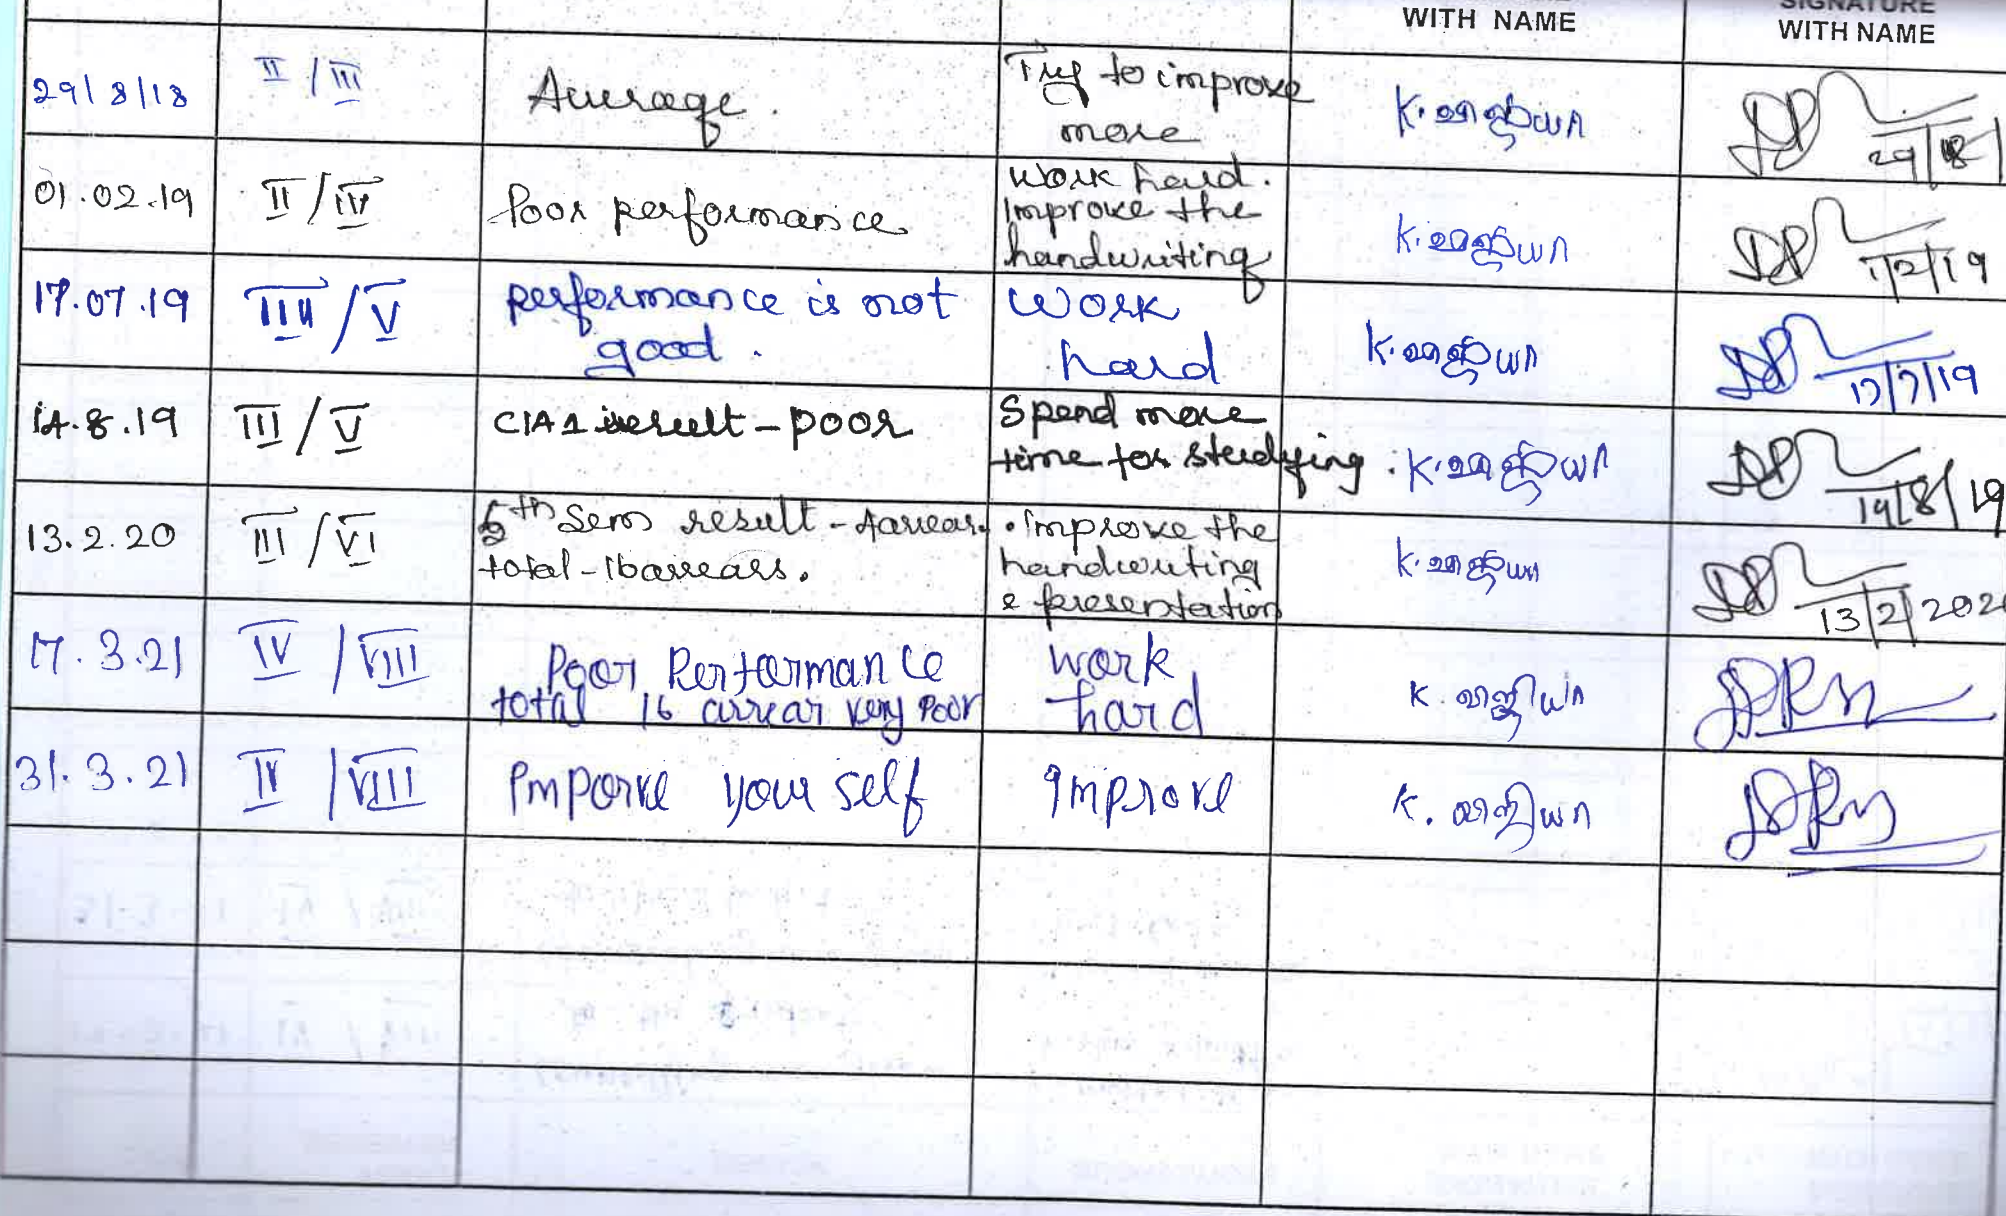 WITH NAME
SIGNATURE
WITH NAME
29/8/18 II/III Average. Try to improve
more
29/8/
01.02.19 II/IV Poor performance Work hard.
Improve the
handwriting
1/2/19
17.07.19 III/V performance is not
good. Work
hard
17/7/19
14.8.19 III/V CIA1 result - poor Spend more
time for studying.
14/8/19
13.2.20 III/VI 5th Sem result - Aarear.
total - 16arrears. Improve the
handwriting
& presentation
13/2/202
17.3.21 IV/VIII Poor Performance
total 16 arrear very Poor work
hard
31.3.21 IV/VIII Pmporve your self Improve